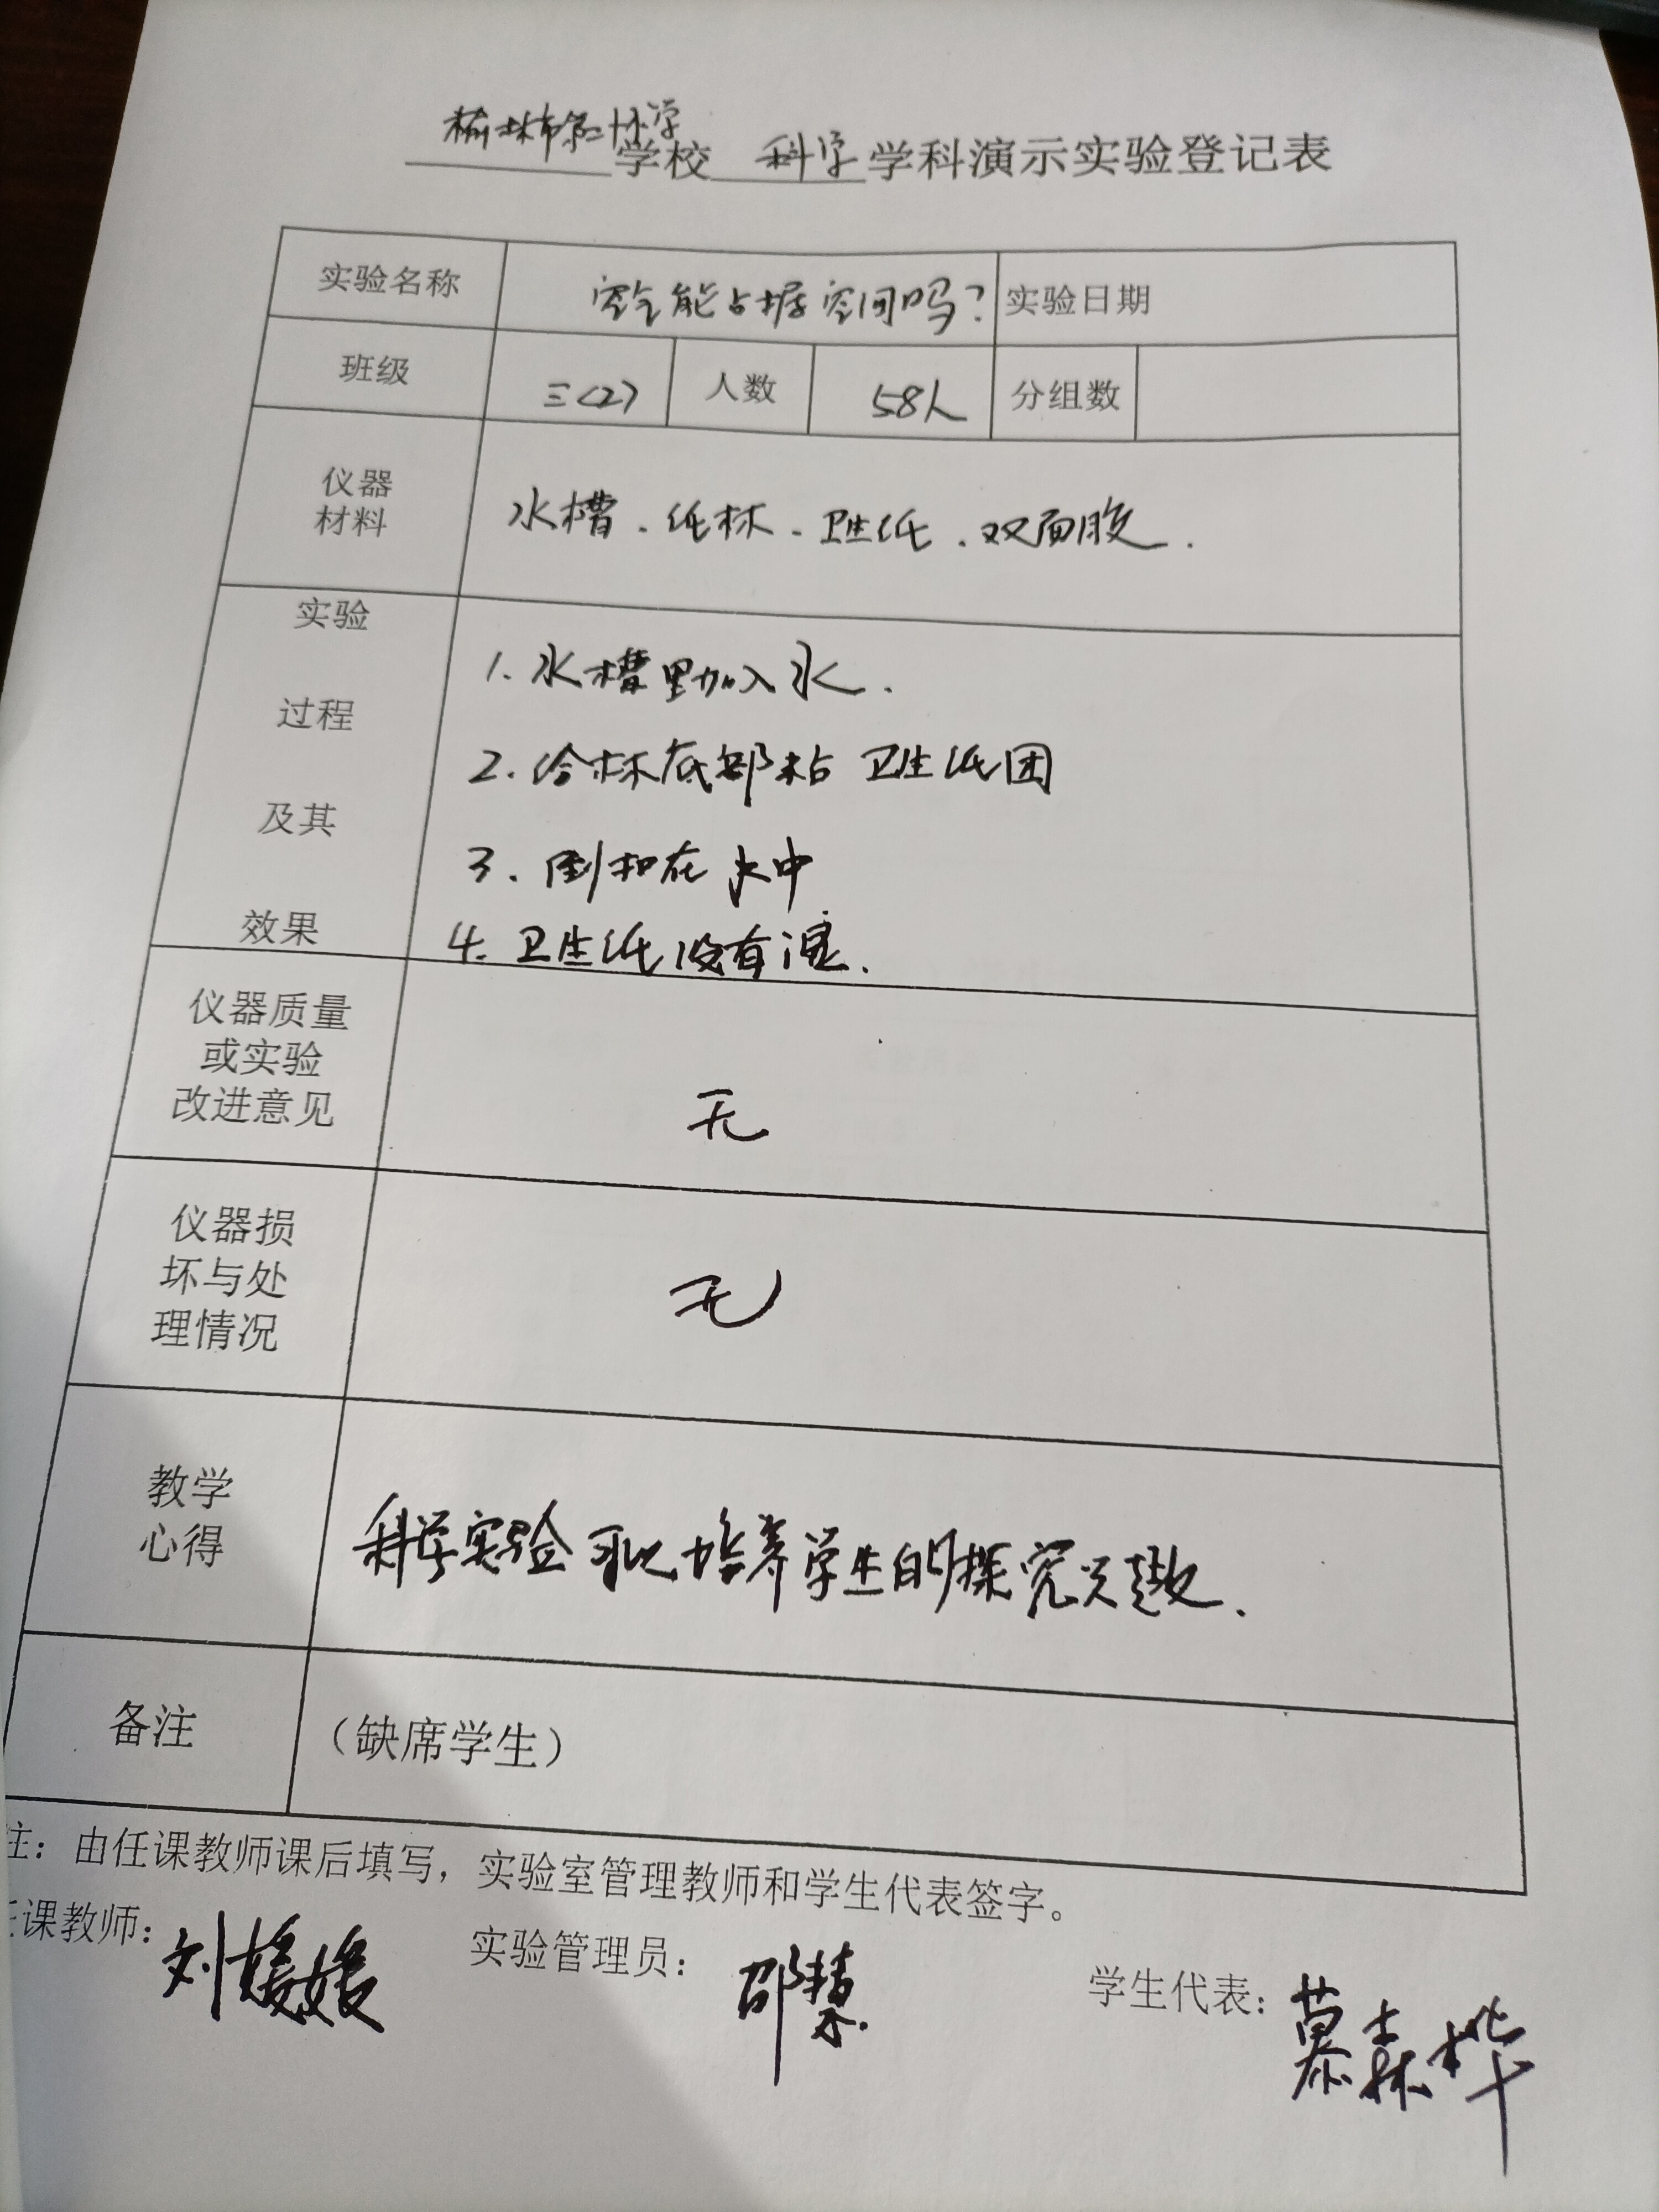 榆林市第二十小学学校 科学 学科演示实验登记表
实验名称 空气能占据空间吗? 实验日期
班级 三(2) 人数 58人 分组数
仪器
材料
水槽、纸杯、卫生纸、双面胶.
实验
过程
及其
效果
1. 水槽里加入水.
2. 给杯底部粘卫生纸团
3. 倒扣在水中
4. 卫生纸没有湿.
仪器质量
或实验
改进意见
无
仪器损
坏与处
理情况
无
教学
心得
科学实验可以培养学生的探究兴趣.
备注 (缺席学生)
注：由任课教师课后填写，实验室管理教师和学生代表签字。
任课教师：刘媛媛 实验管理员：邵慧 学生代表：慕森桦